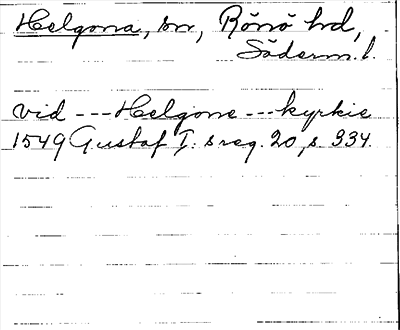 Helgona, sn, Rönö hd,
Söderm. l.
vid --- Helgone --- kyrkie
1549 Gustaf I:s reg. 20, s. 334.